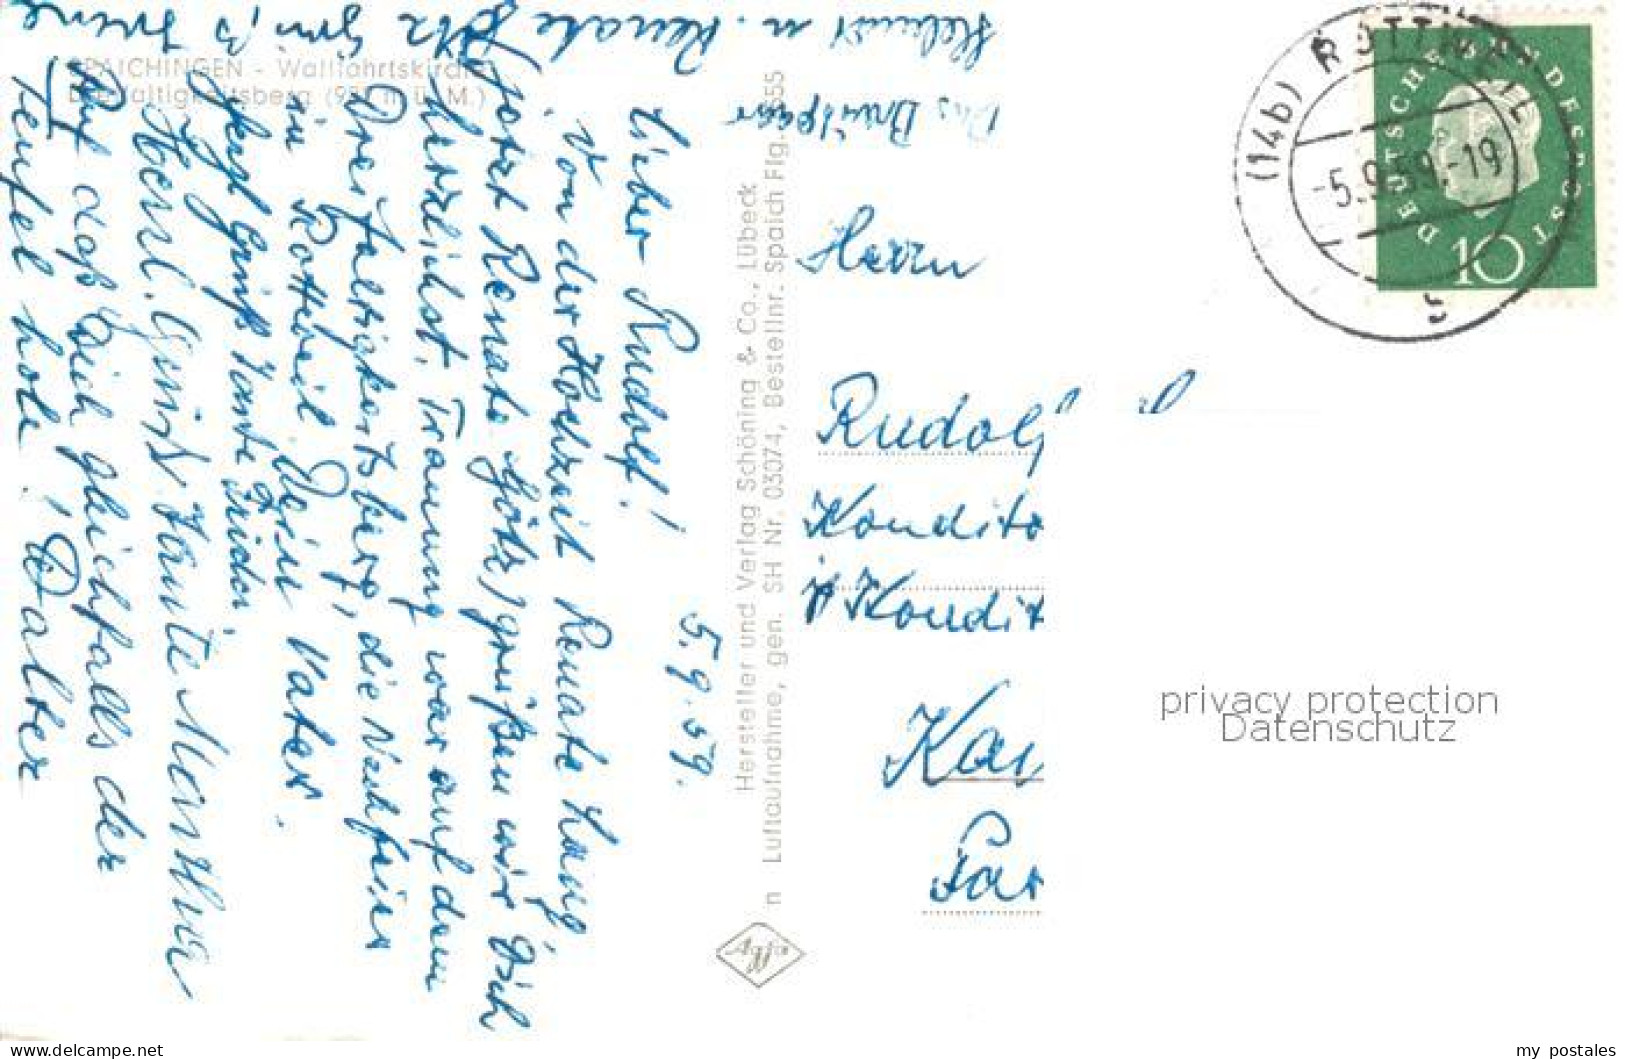 SPAICHINGEN - Wallfahrtskirche
Dreifaltigkeitsberg (985 m ü. M.)
5.9.59.
Lieber Rudolf!
Von der Hochzeit Renate Lang,
(jetzt Renate Götz) grüßen wir Dich
herzlichst. Trauung war auf dem
Dreifaltigkeitsberg, die Nachfeier
in Rottweil Dein Vater.
Gruß Tante Frieda
Herzl. Gruß Tante Martha
Auf daß Dich gleichfalls der
Teufel hole! Walter
Helmut u. Renate Götz
Das Brautpaar
Hersteller und Verlag Schöning & Co., Lübeck
n Luftaufnahme, gen. SH Nr. 03074, Bestellnr. Spaich Flg. 3555
Agfa
(14b) ROTTWEIL
-5.9.59.-19
DEUTSCHE BUNDESPOST
10
Herrn
Rudolf
Kondito
Kondit
privacy protection
Datenschutz
www.delcampe.net
my_postales